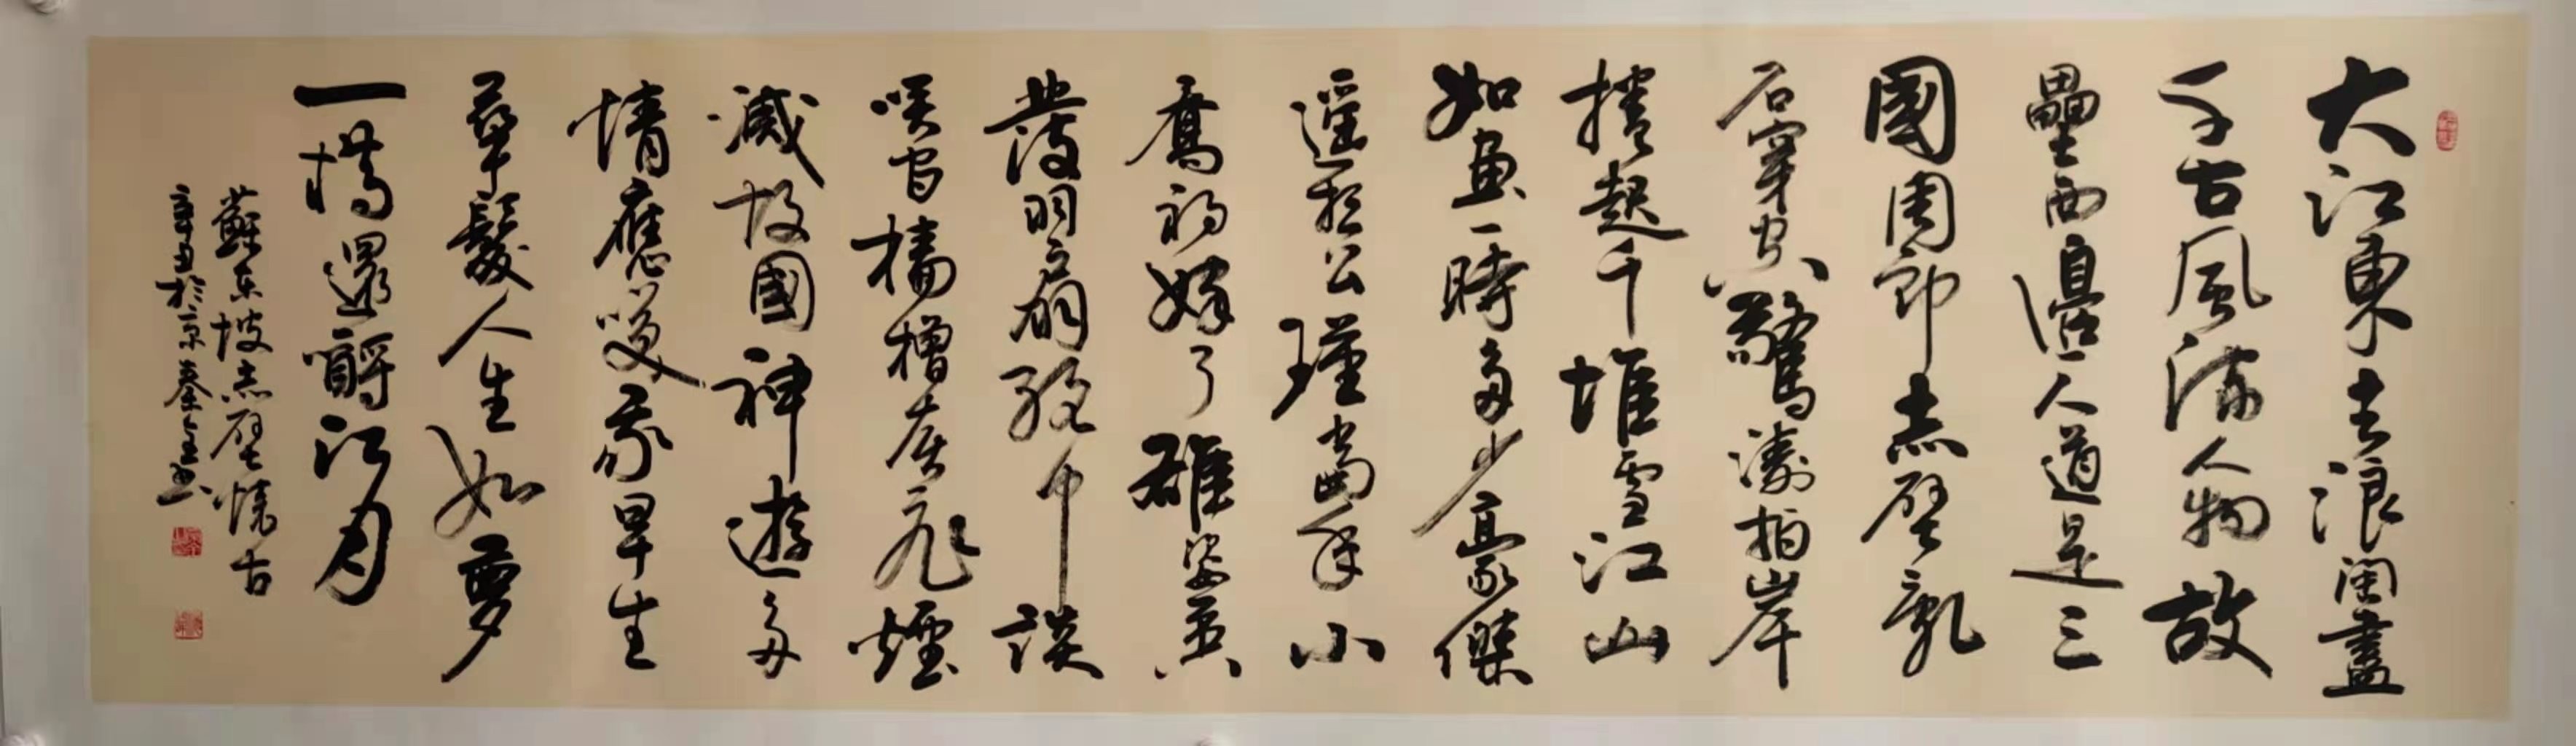 大江東去浪淘盡
千古風流人物故
壘西邊人道是三
國周郎赤壁亂
石穿空驚濤拍岸
捲起千堆雪江山
如畫一時多少豪傑
遥想公瑾當年小
喬初嫁了雄姿英
發羽扇綸巾談
咲間檣櫓灰飛煙
滅故國神遊多
情應笑我早生
華髮人生如夢
一樽還酹江月
蘇東坡赤壁懷古
辛丑於京秦金書